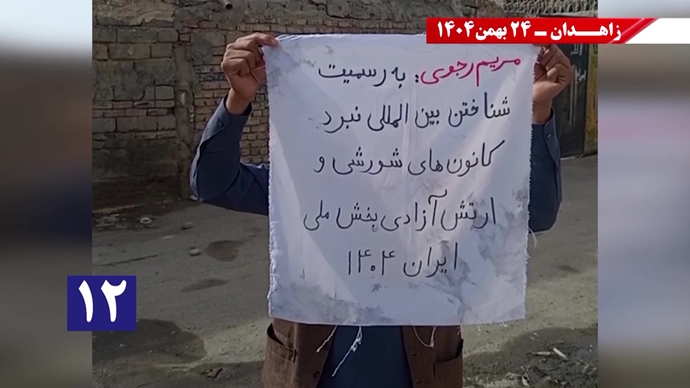 زاهـدان ـ ۲۴ بهمن۱۴۰۴
مریم رجوی: به رسمیت
شناختن بین المللی نبرد
کانون‌های شورشی و
ارتش آزادی بخش ملی
ایران ۱۴۰۴
۱۲